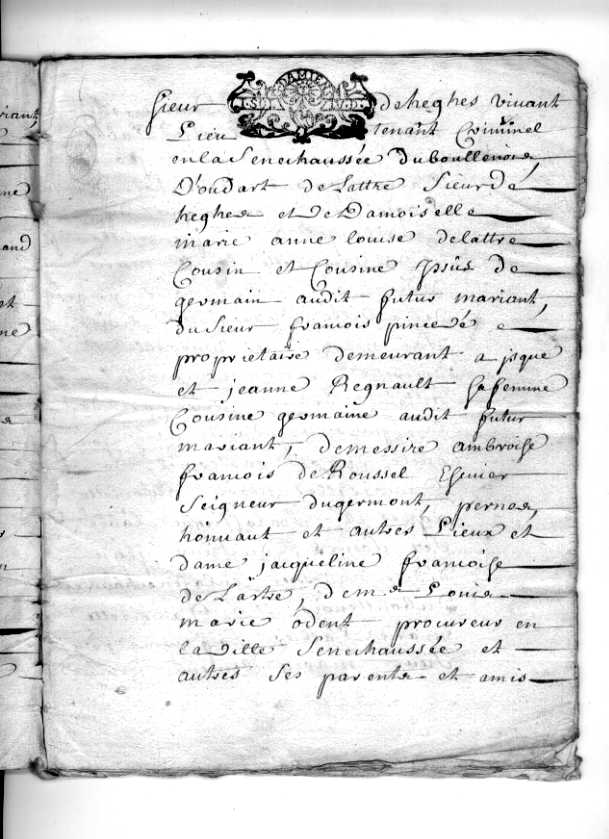 D'AMIENS
Sieur de heghes vivant
Lieu tenant Criminel
en la Senechaussée du boullenois,
D'oudart de Lattre Sieur dé
heghes et de Damoiselle
marie anne louise delattre
Cousin et Cousine Issüs de
germain audit futur mariant,
du Sieur francois pincedé
proprietaire demeurant a jsque
et jeanne Regnault sa femme
Cousine germaine audit futur
mariant, de messire ambroise
francois de Roussel Escuier
Seigneur dugermont, pernes,
honvaut et autres Lieux et
dame jacqueline francoise
de Lattre, de me Louis
marie odent procureur en
la ville Senechaussée et
autres ses parents et amis
riant,
ne
and
et
ne